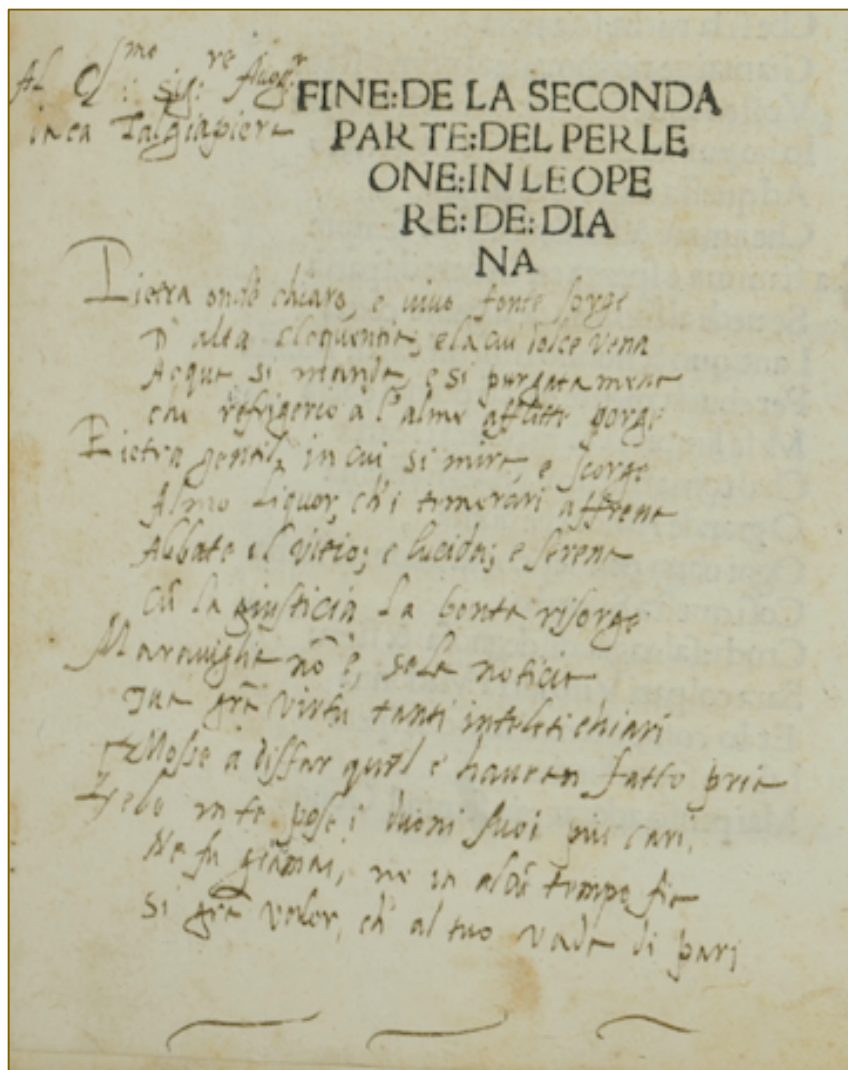 Al Cl.mo sig.re Avog.r
Luca Talgiapiera
FINE:DE LA SECONDA
PARTE:DEL PERLE
ONE:IN LE OPE
RE:DE:DIA
NA
Pietra onde chiaro, e vivo fonte sorge
D'alta eloquentia; e la cui dolce vena
Acque si monde, e si purgata mena
che refrigerio a l'alme afflitte porge
Pietra gentil, in cui si mira, e scorge
Almo liquor, ch'i temerari affrena
Abbate il vitio; e lucida; e serena
Cũ la giusticia la bonta risorge
Maraviglia nõ è, se la noticia
Tua grã virtu tanti inteleti chiari
Mosse a disfar quel e havean fatto pria
Febo in te pose i duoni suoi piu cari,
Ne fu giamai, ne in altro tempo fia
Si grã valor, ch'al tuo vada di pari